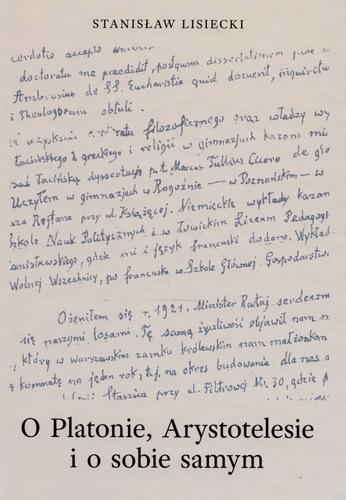 STANISŁAW LISIECKI
accepto
doctoratu me praedidit, postquam dissertationem
Ambrosius de SS. Eucharistia quid docuerit, inquisitu
Theologorum obtuli.
uzyskaniu filozoficznego oraz władzy wy
łacińskiego i greckiego i religii w gimnazjach kazano mi
łacińską dyssertację p.t. Marcus Tullius Cicero de glo
Uczyłem w gimnazjach w Rogoźnie — w Poznańskiem — w
przy ul. Książęcej. Niemieckie wykłady kazan
Szkole Nauk Politycznych i w Łowickim Liceum Pedagog
gdzie mi i język francuski dodano. Wykład
Wolnej Wszechnicy, po francusku w Szkole Głównej. Gospodarstw
Ożeniłem się r. 1921. Minister Rataj serdeczn
się naszymi losami. Tę samą życzliwość objawił nam
, który w warszawskim zamku królewskim nam małżonkom
komnatę na jeden rok, t.j. na okres budowania dla nas
Staszica przy ul. Filtrowej Nr. 30, gdzie p
O Platonie, Arystotelesie
i o sobie samym